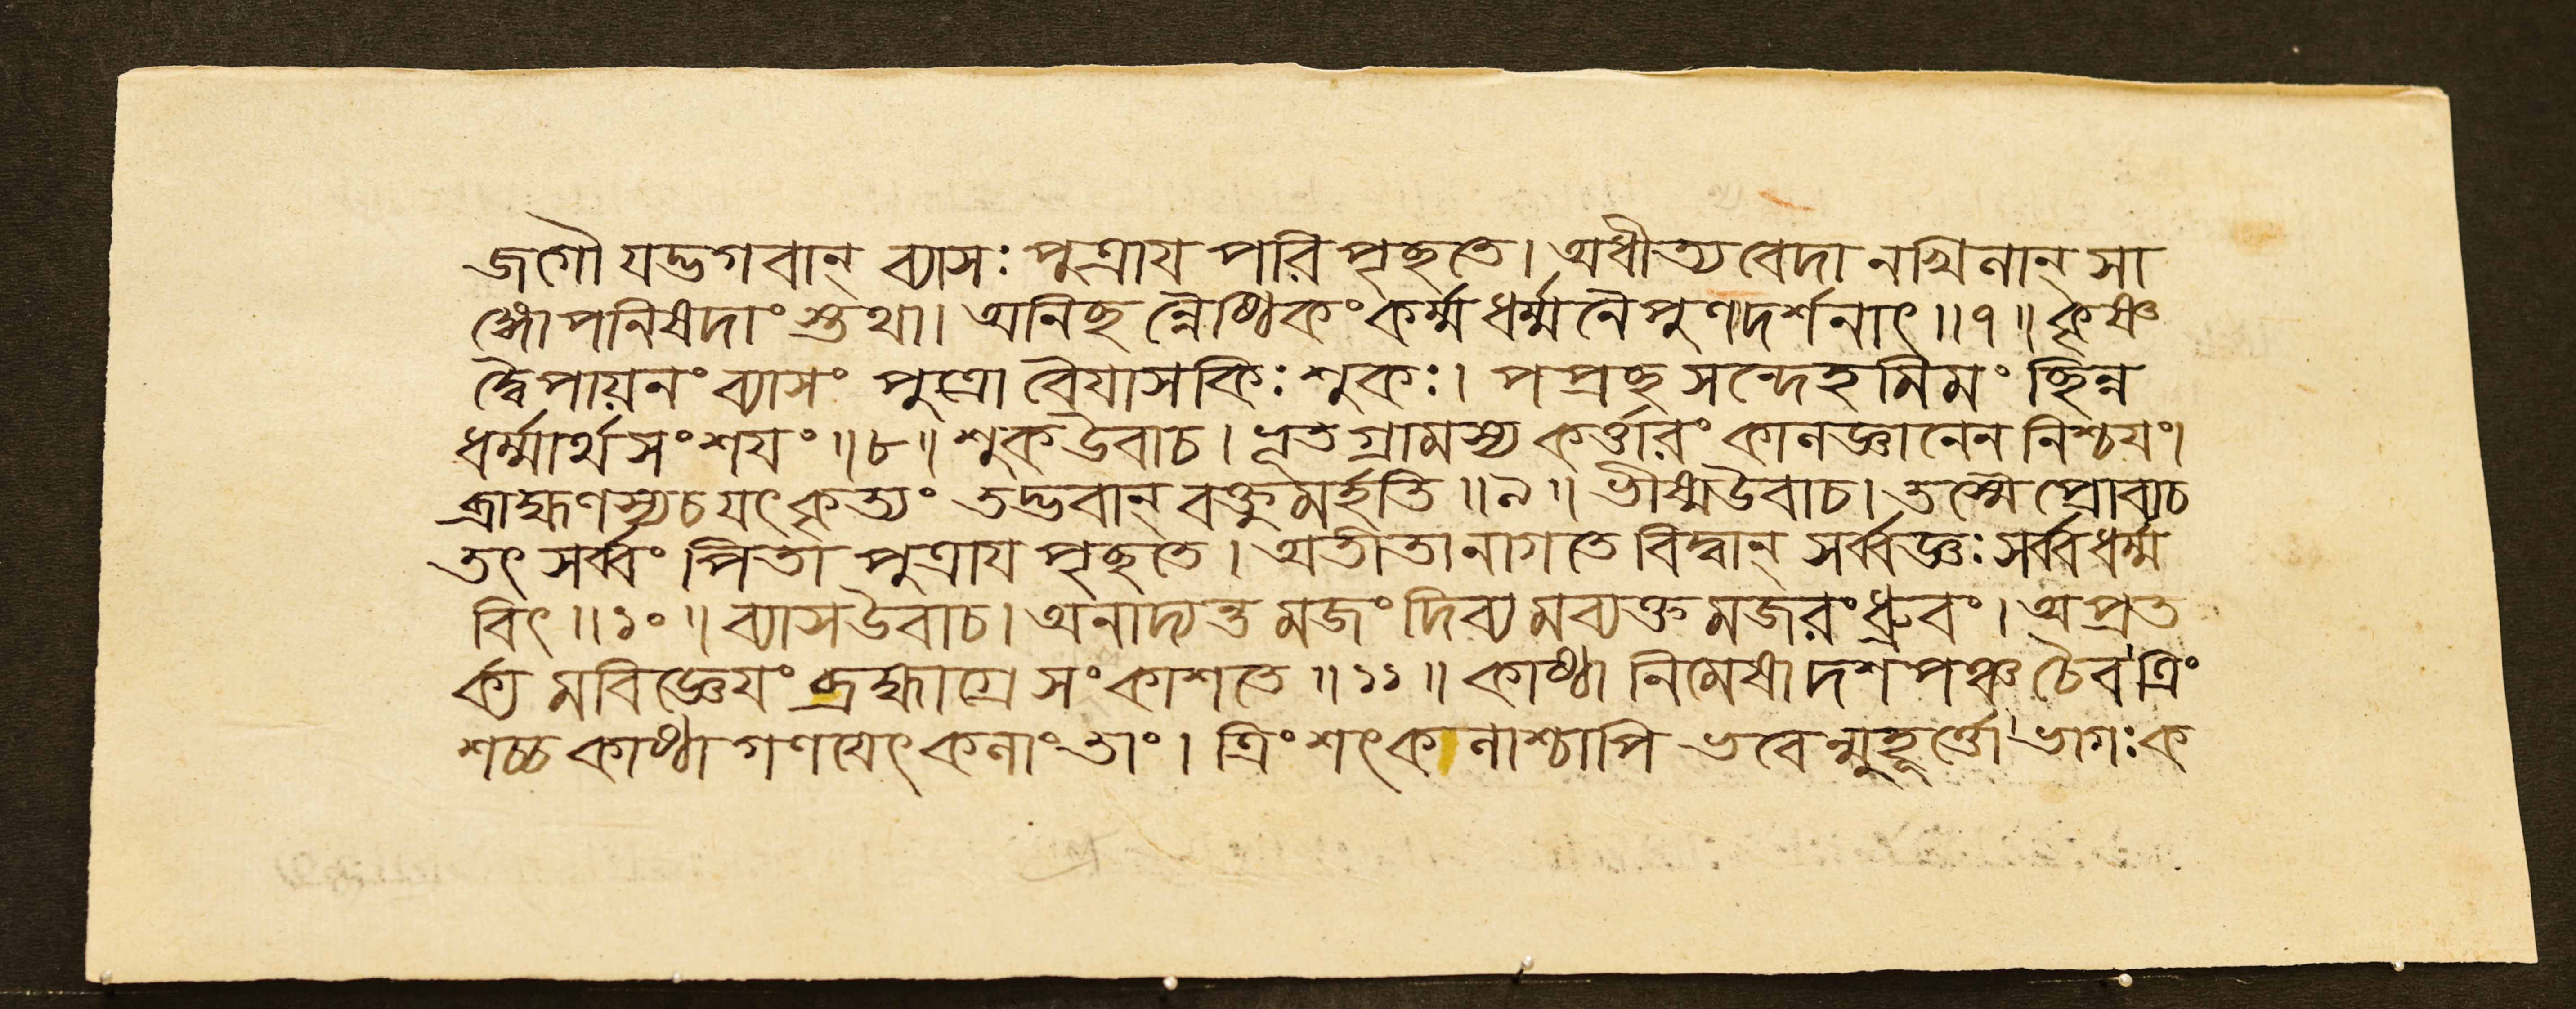 জগৌ যদ্ভগবান্ ব্যাসঃ পুত্রায পরিপৃচ্ছতে। অধীত্য বেদানখিলান্ সা
ঙ্গোপনিষদাং স্তুথা। অনিচ্ছন্নৈষ্ঠিকং কর্ম্ম ধর্ম্মনৈপুণদর্শনাৎ॥৭॥ কৃষ্ণ
দ্বৈপায়নং ব্যাসং পুত্রো বৈযাসকিঃ শুকঃ। পপ্রচ্ছ সন্দেহমিমং ছিন্ন
ধর্ম্মার্থসংশযং॥৮॥ শুকউবাচ। ভূতগ্রামস্য কর্ত্তারং কালজ্ঞানেন নিশ্চযং।
ব্রাহ্মণস্যচ যৎকৃত্যং তদ্ভবান্ বক্তুমর্হতি॥৯॥ ভীষ্মউবাচ। তস্মৈ প্রোবাচ
তৎ সর্ব্বং পিতা পুত্রায পৃচ্ছতে। অতীতানাগতে বিদ্বান্ সর্ব্বজ্ঞঃ সর্ব্বধর্ম্ম
বিৎ॥১০॥ ব্যাসউবাচ। অনাদ্যন্তমজং দিব্যমব্যক্তমজরং ধ্রুবং। অপ্রত
র্ক্য মবিজ্ঞেযং ব্রহ্মাগ্রে সংকাশতে॥১১॥ কাষ্ঠা নিমেষা দশপঞ্চ চৈব ত্রিং
শচ্চ কাষ্ঠা গণযেৎ কলাং তাং। ত্রিংশৎকলাশ্চাপি ভবেন্মুহূর্ত্তো ভাগঃ ক